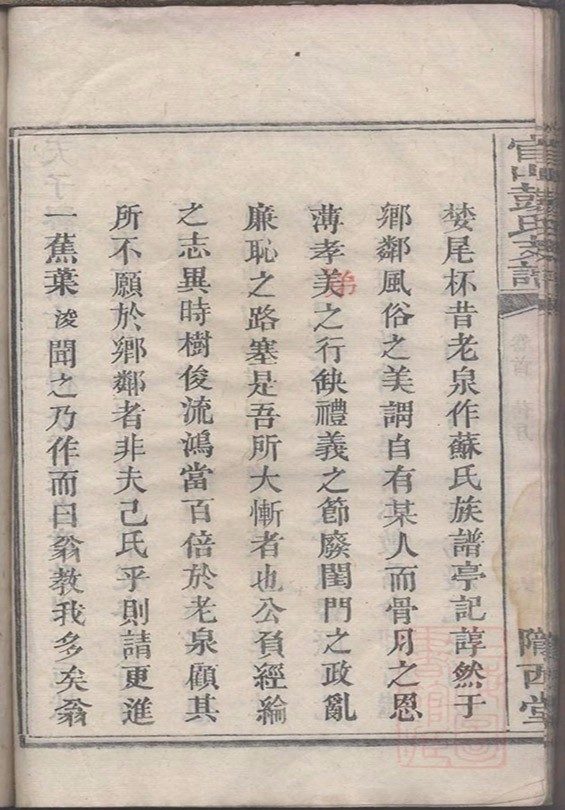 婪尾杯昔老泉作蘇氏族譜亭記諄然于
鄉鄰風俗之美謂自有某人而骨月之恩
薄孝美之行缺禮義之節廢閨門之政亂
弟
廉恥之路塞是吾所大慚者也公負經綸
之志異時樹俊流鴻當百倍於老泉顧其
所不願於鄉鄰者非夫己氏乎則請更進
一蕉葉浚聞之乃作而曰翁教我多矣翁
隴西堂